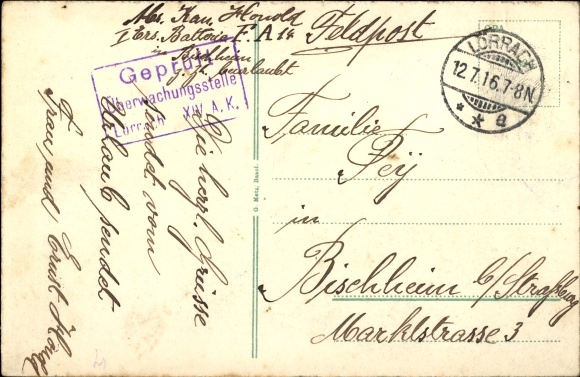 Abs. Kan. Honold
I Ers. Batterie F. A. 14 Feldpost
in Bischheim
beurlaubt
Geprüft
Überwachungsstelle
Lörrach XIV A. K.
LÖRRACH
12.7.16. 7-8N.
* * a
Familie
in
Bischheim b/Straßburg
Marktstrasse 3
Die herzl. Grüsse
sendet vom
Urlaub sendet
Frau und Ernst
G. Metz, Basel.